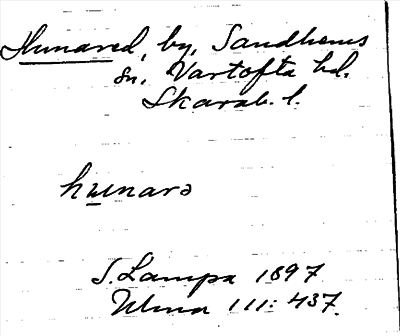 Hunared, by, Sandhems
sn, Vartofta hd.
Skarab. l.
hunarə
S. Lampa 1897
Ulma 111:437.